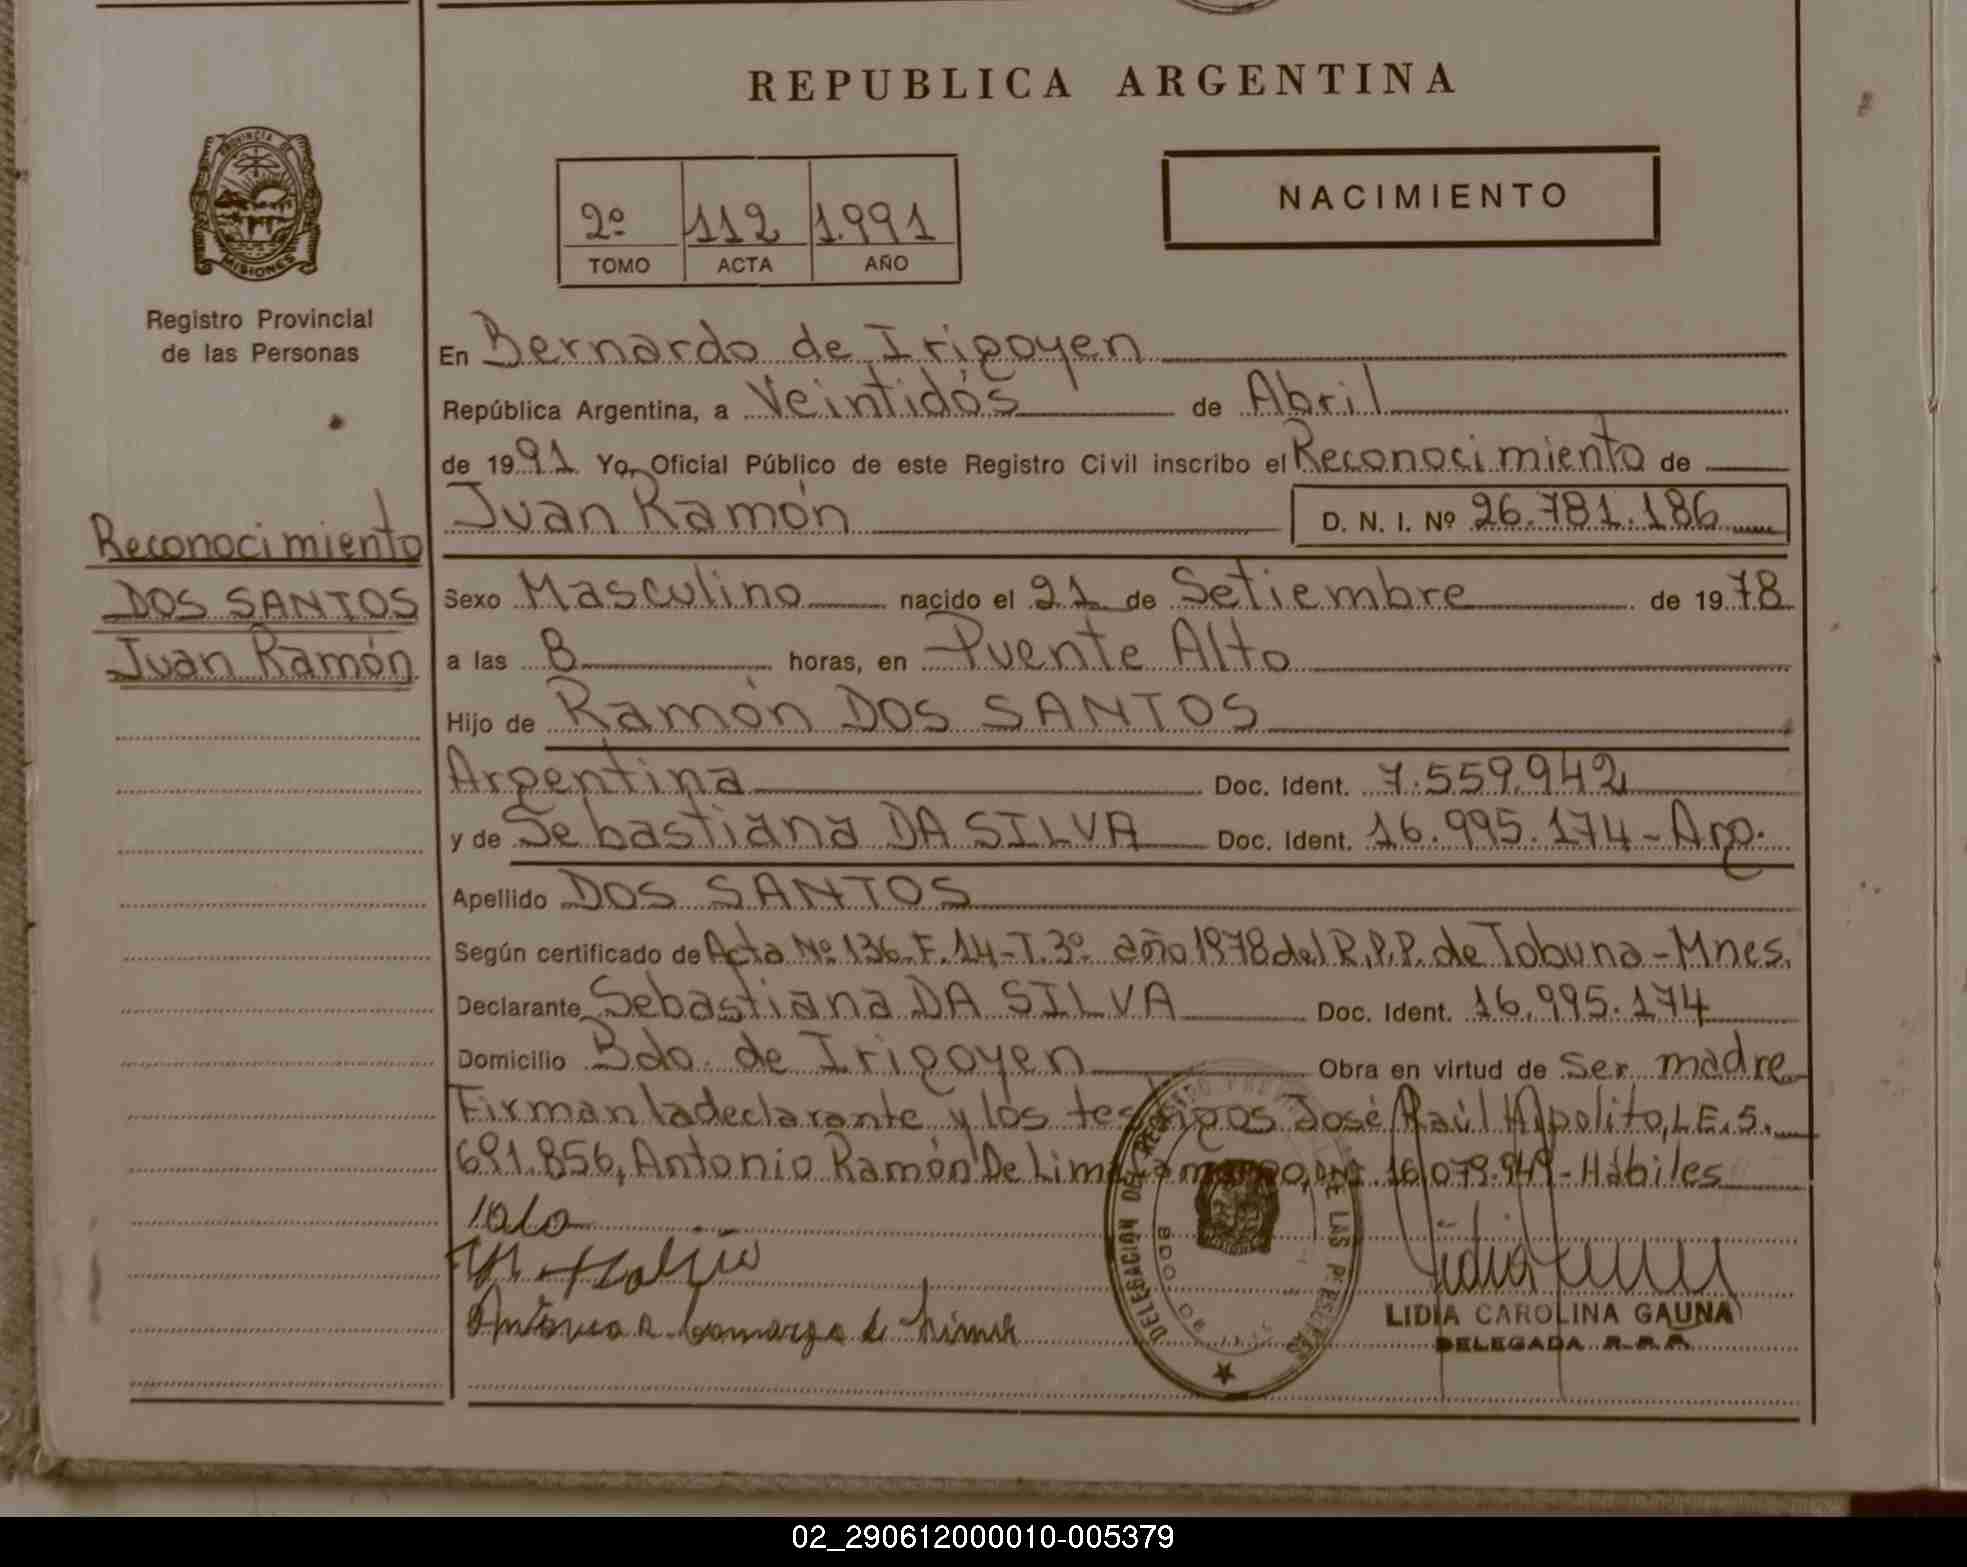 REPUBLICA ARGENTINA
PROVINCIA DE
MISIONES
Registro Provincial
de las Personas
2º 112 1.991
TOMO ACTA AÑO
NACIMIENTO
En Bernardo de Irigoyen
República Argentina, a Veintidós de Abril
de 1991 Yo, Oficial Público de este Registro Civil inscribo el Reconocimiento de
Juan Ramón D. N. I. Nº 26.781.186
Reconocimiento
DOS SANTOS
Juan Ramón
Sexo Masculino nacido el 21 de Setiembre de 1978
a las 8 horas, en Puente Alto
Hijo de Ramón DOS SANTOS
Argentina Doc. Ident. 7.559.942
y de Sebastiana DA SILVA Doc. Ident. 16.995.174 - Arg.
Apellido DOS SANTOS
Según certificado de Acta Nº 136 F.14-T.3º año 1978 del R.P.P. de Tobuna - Mnes.
Declarante Sebastiana DA SILVA Doc. Ident. 16.995.174
Domicilio Bdo. de Irigoyen Obra en virtud de ser madre
Firman la declarante y los testigos José Raúl Hipolito, L.E. 5.
691.856, Antonio Ramón De Lima DNI 16.079.949 - Hábiles
Antonio R. Camargo de Lima
DELEGACIÓN DEL REGISTRO DE LAS PERSONAS
BDO DE
LIDIA CAROLINA GAUNA
DELEGADA R.P.P.
02_290612000010-005379